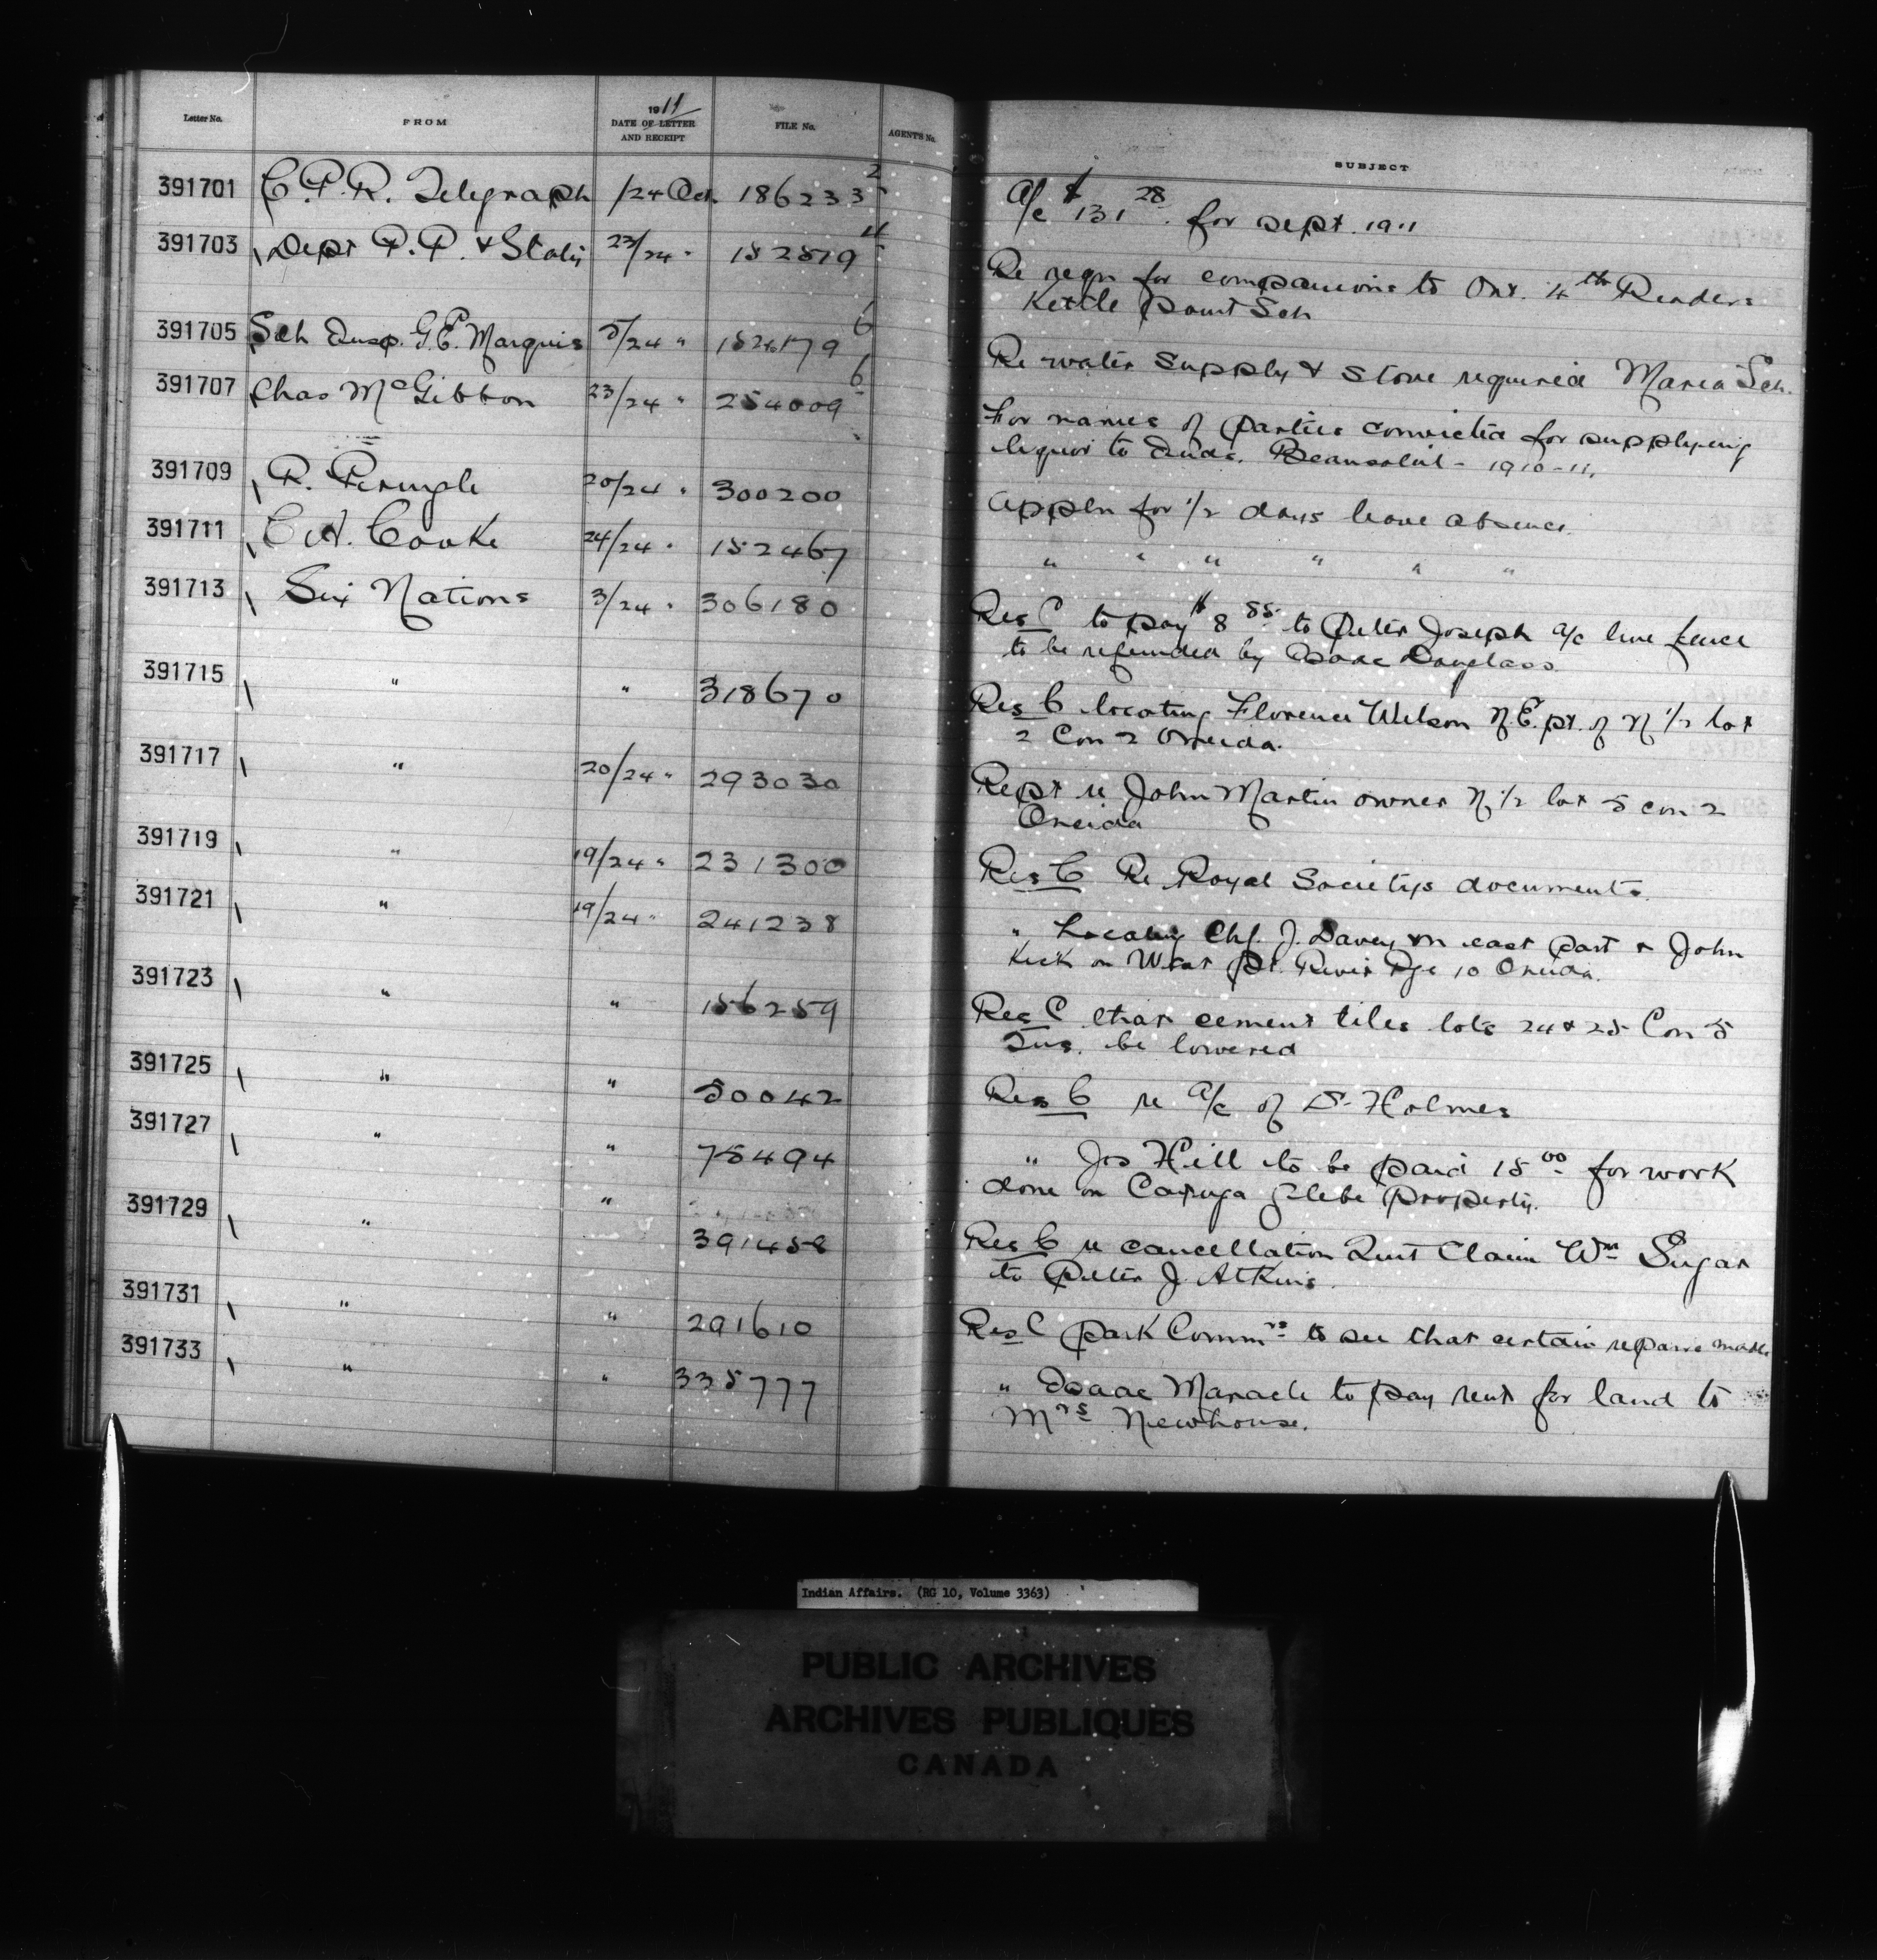 Letter No. FROM 1911 DATE OF LETTER AND RECEIPT FILE No. AGENTS No. SUBJECT
391701 C.P.R. Telegraph /24 Oct. 186233 2 A/c $131 28 for Sept. 1911
391703 Dept P.P. & Staty 23/24 " 152519 4 Re reqn for companions to Ont. 4th Readers
Kettle Point Sch
391705 Sch Insp. G.E. Marquis 5/24 " 154179 6 Re water supply & stove required Maria Sch.
391707 Chas McGibbon 23/24 " 254009 6 For names of parties convicted for supplying
liquor to Inds. Beausoleil - 1910-11.
391709 R. Pringle 20/24 " 300200 Appln for 1/2 days leave absence.
391711 C.A. Cooke 24/24 " 152467 " " " " " "
391713 Six Nations 3/24 " 306180 Res C to pay $8 85 to Peter Joseph a/c line fence
to be refunded by Isaac Douglass
391715 " " 318670 Res C locating Florence Wilson N.E. pt. of N 1/2 lot
2 Con 2 Oneida.
391717 " 20/24 " 293030 Rept re John Martin owner N 1/2 lot 5 con 2
Oneida
391719 " 19/24 " 231300 Res C Re Royal Societys documents.
391721 " 19/24 " 241238 " Locating Chf. J. Davey on east part & John
Kick on West pt. River Rge 10 Oneida.
391723 " " 156259 Res C that cement tiles lots 24 & 25 Con 5
Tus. be lowered
391725 " " 50042 Res C re a/c of Dr Holmes
391727 " " 75494 " Jos Hill to be paid 15 00 for work
done on Cayuga Glebe property.
391729 " " 391458 Res C re cancellation Quit Claim Wm Sugar
to Peter J. Atkins.
391731 " " 291610 Res C Park Commrs to see that certain repairs made
391733 " " 335777 " Isaac Maracle to pay rent for land to
Mrs Newhouse.
Indian Affairs. (RG 10, Volume 3363)
PUBLIC ARCHIVES
ARCHIVES PUBLIQUES
CANADA